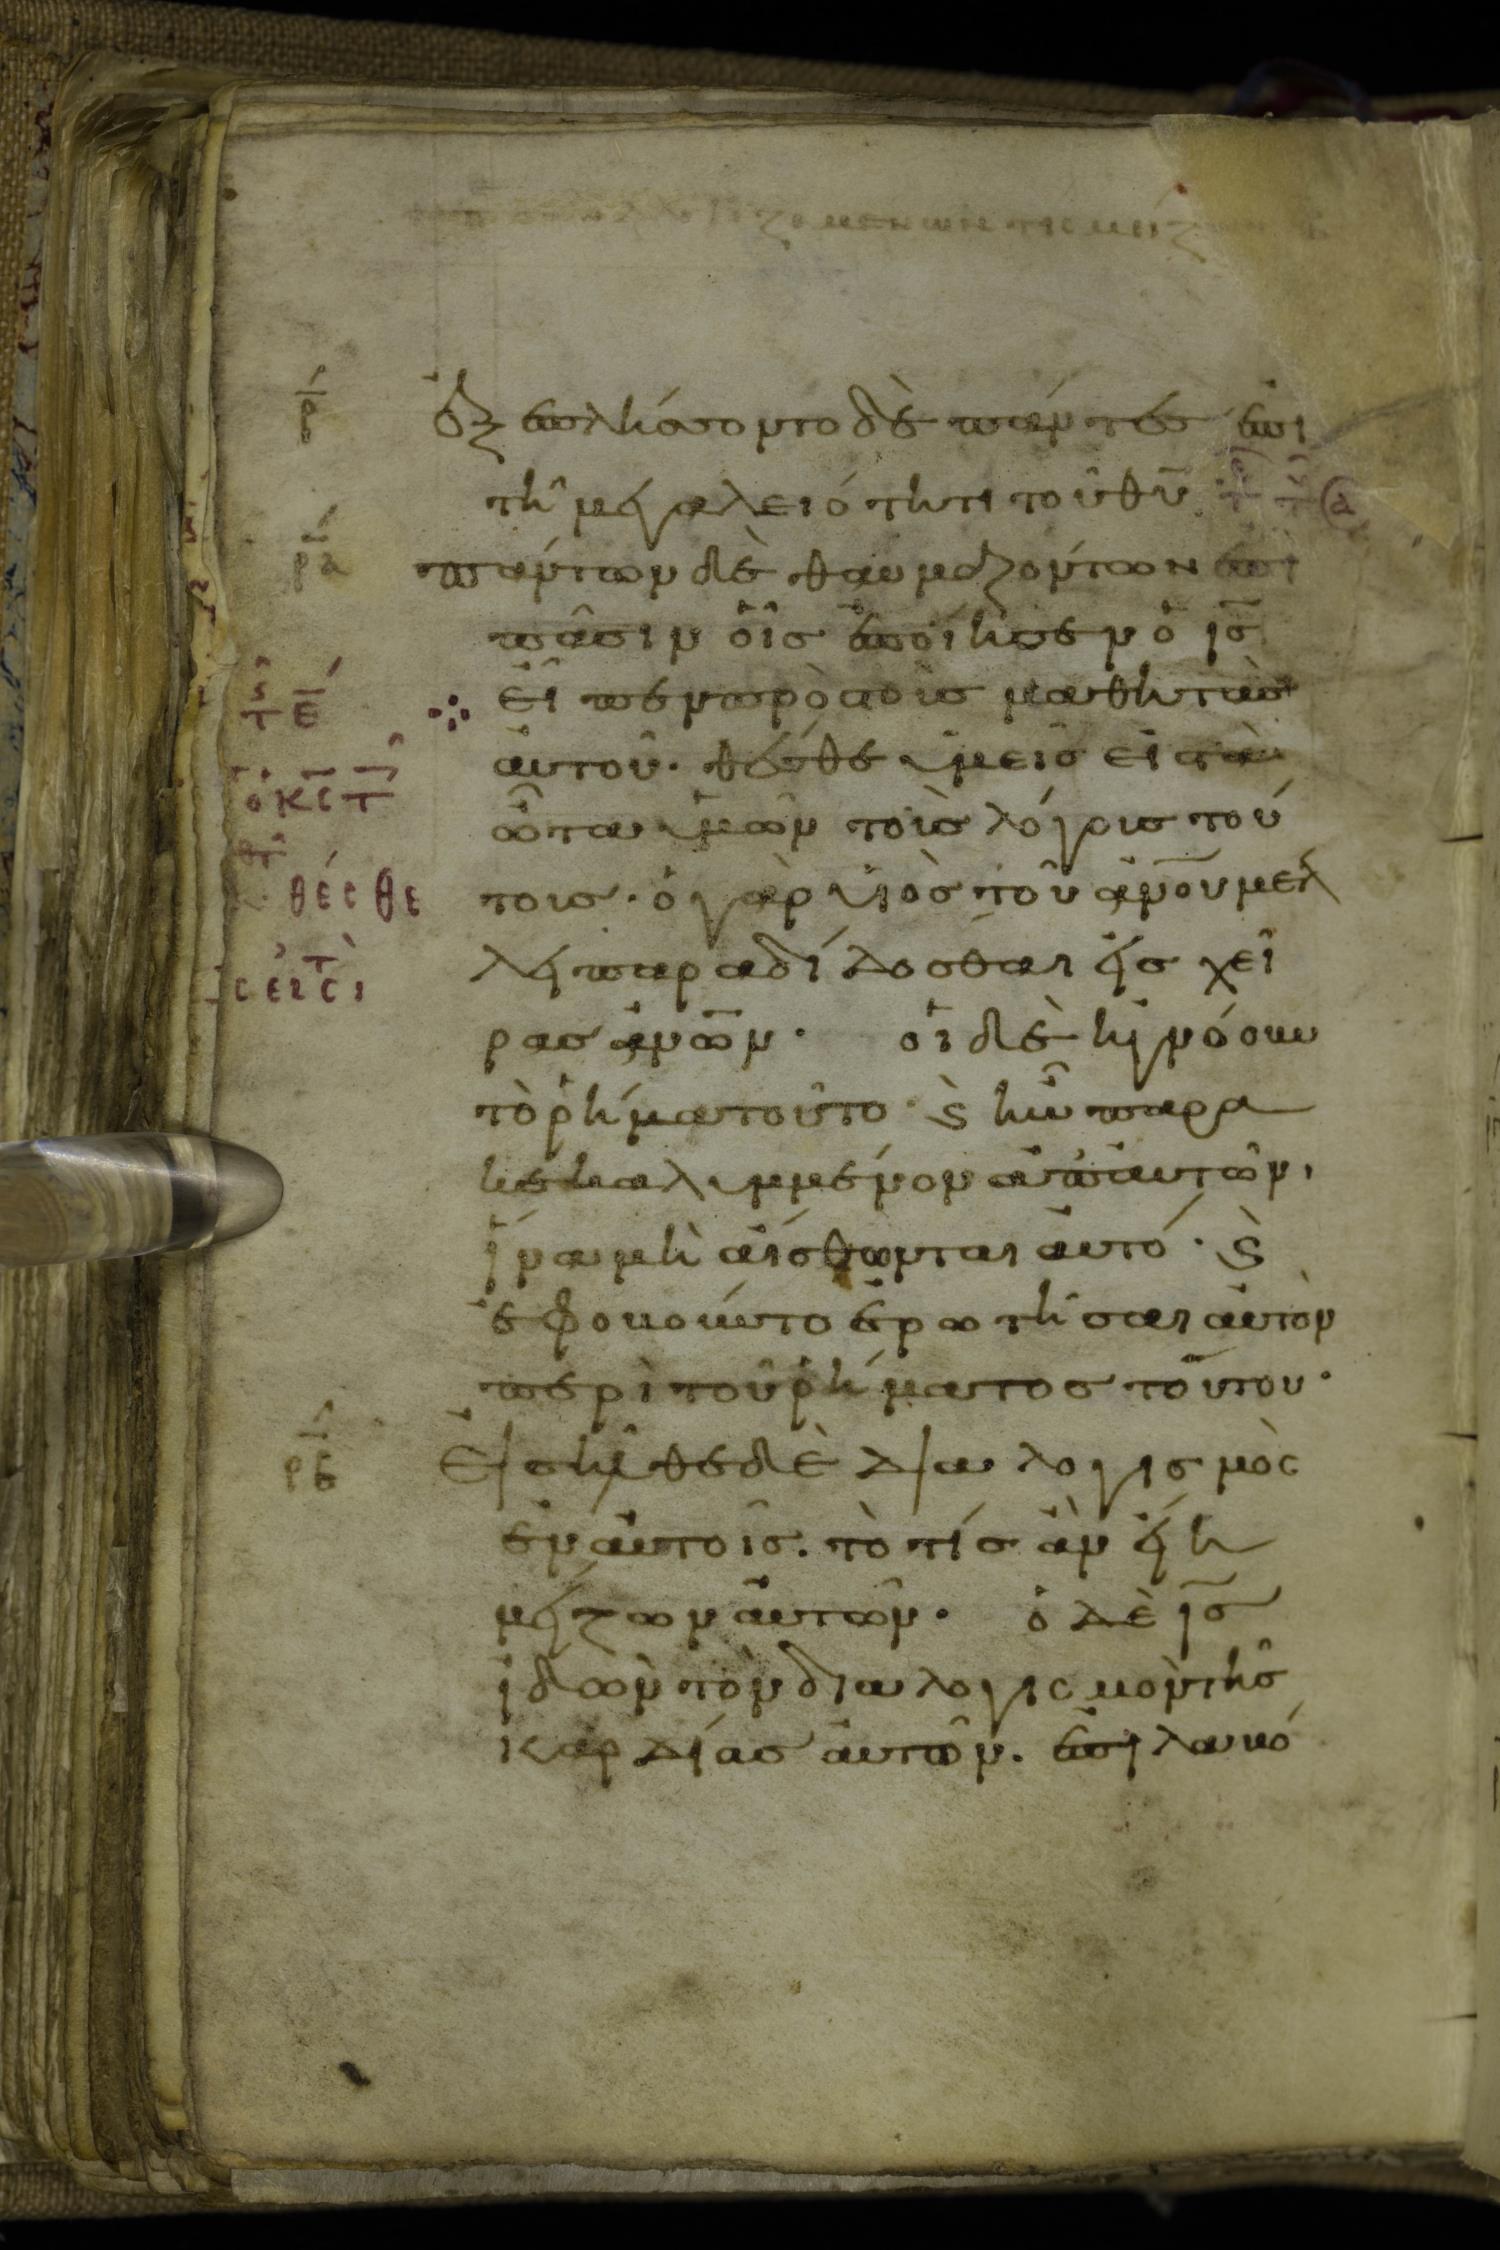 λογιζομένων τίς μείζ
ρ
ἐξεπλήσσοντο δὲ πάντες ἐπὶ
τῆ μεγαλειότητι τοῦ θ̅υ̅
ρα
πάντων δὲ θαυμαζόντων ἐπὶ
πᾶσιν οἷς ἐποίησεν ὁ ι̅ς̅
εἶπεν πρὸς τοὺς μαθητὰς
αὐτοῦ· θέσθε ὑμεῖς εἰς τὰ
ὦτα ὑμῶν τοὺς λόγους τού
θέσθε
τους· ὁ γὰρ υἱὸς τοῦ α̅ν̅ο̅υ̅ μέλ
λει παραδίδοσθαι εἰς χεῖ
ρας α̅ν̅ω̅ν̅· οἱ δὲ ἠγνόουν
τὸ ῥῆμα τοῦτο· ϗ ἦν παρα
κεκαλυμμένον ἀπ' αὐτῶν,
ἵνα μὴ αἴσθωνται αὐτό· ϗ
ἐφοβοῦντο ἐρωτῆσαι αὐτὸν
περὶ τοῦ ῥήματος τούτου·
ρβ
Εἰσῆλθε δὲ διαλογισμὸς
ἐν αὐτοῖς. τὸ τίς ἂν εἴη
μείζων αὐτῶν· ὁ δὲ ι̅ς̅
ἰδὼν τὸν διαλογισμὸν τῆς
καρδίας αὐτῶν. ἐπιλαβό